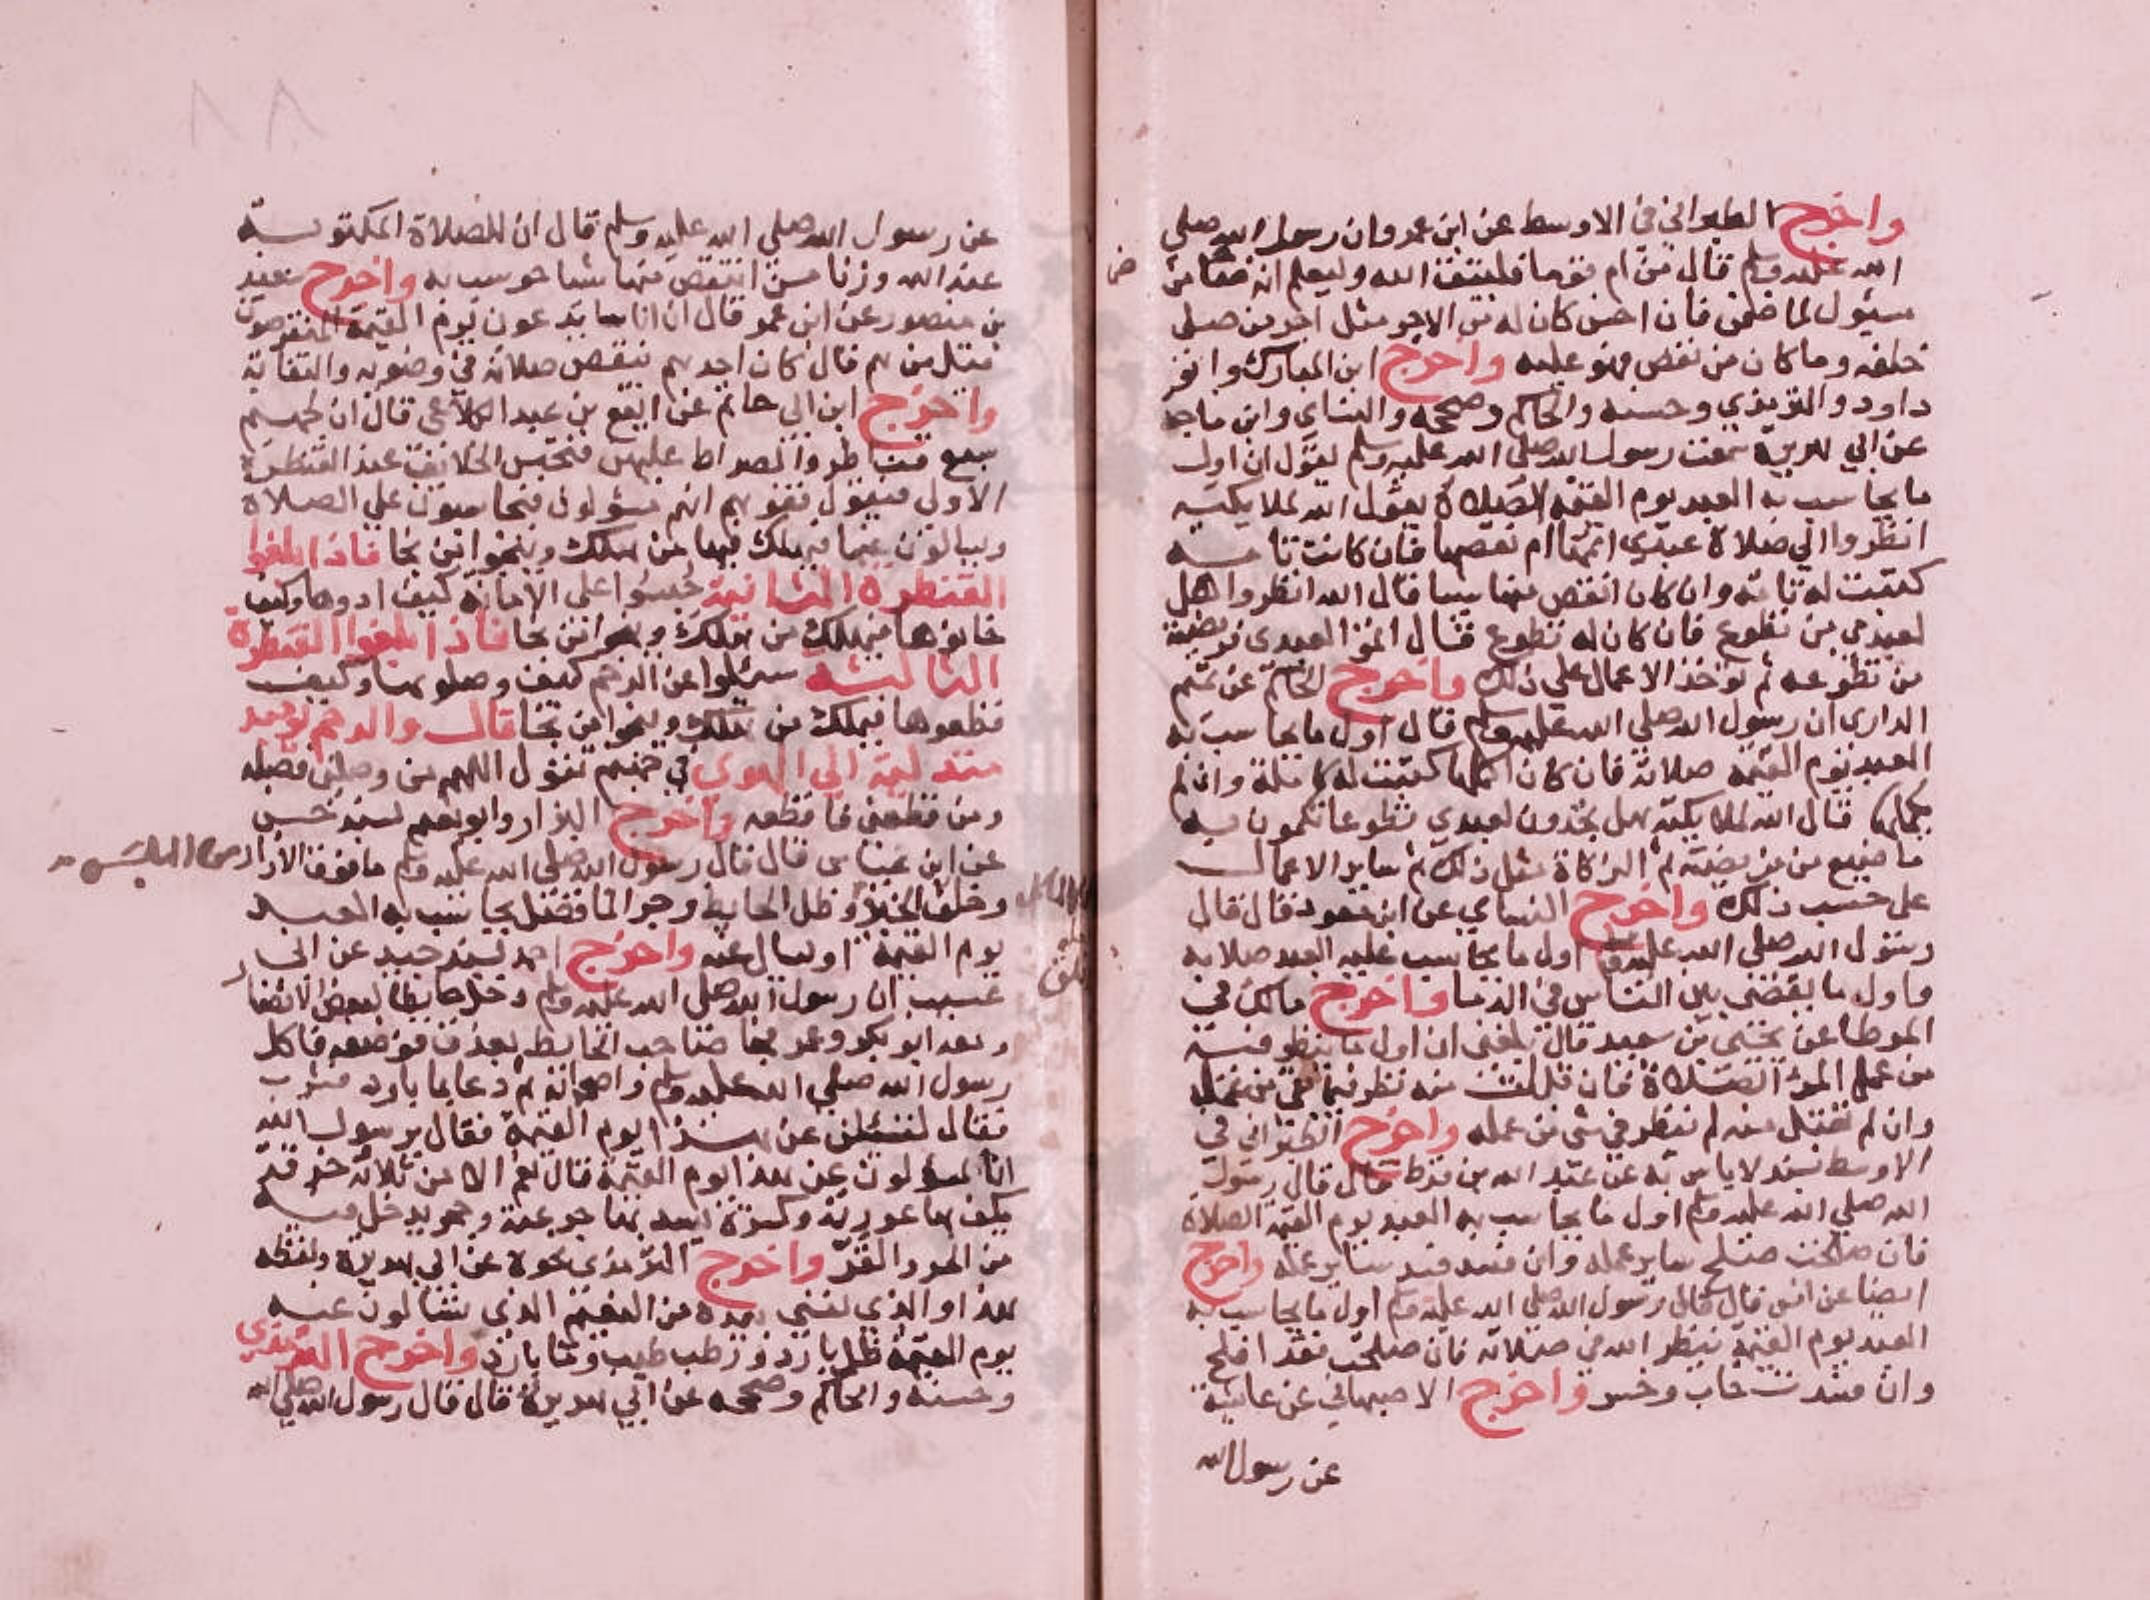 واخرج الطبراني في الاوسط عن ابن عمر وان رسول الله صلي
الله عليه وسلم قال من ام قوما فليتق الله وليعلم انه ضامن
مسئول لما ضمن فان احسن كان له من الاجر مثل اجر من صلى
خلفه وما كان من نقص فهو عليه واخرج ابن المبارك وابو
داود والترمذي وحسنه والحاكم وصححه والنساي وابن ماجه
عن ابي هريرة سمعت رسول الله صلى الله عليه وسلم يقول ان اول
ما يحاسب به العبد يوم القيمة الصلاة يقول الله لملايكته
انظروا الي صلاة عبدي اتمها ام نقصها فان كانت تامه
كتبت له تامه وان كان انتقص منها شيا قال الله انظروا هل
لعبدي من تطوع فان كان له تطوع قال اتموا لعبدي فريضته
من تطوعه ثم توخذ الاعمال علي ذلك واخرج الحاكم عن تميم
الداري ان رسول الله صلى الله عليه وسلم قال اول ما يحاسب به
العبد يوم القيمه صلاته فان كان اكملها كتبت له كاملة وان لم
يكملها قال الله لملايكته هل تجدون لعبدي تطوعا تكملون به
ما ضيع من فريضته ثم الزكاة مثل ذلك ثم ساير الاعمال
على حسب ذلك واخرج النساي عن ابن مسعود قال قال
رسول الله صلى الله عليه وسلم اول ما يحاسب عليه العبد صلاته
واول ما يقضى بين الناس في الدما واخرج مالك في
الموطا عن يحيى بن سعيد قال بلغني ان اول ما ينظر فيه
من عمل المرء الصلاة فان قبلت منه نظر فيما بقي من عمله
وان لم تقبل منه لم ينظر في شي من عمله واخرج الطبراني في
الاوسط بسند لا باس به عن عبد الله بن قرط قال قال رسول
الله صلي الله عليه وسلم اول ما يحاسب به العبد يوم القيمة الصلاة
فان صلحت صلح ساير عمله وان فسدت فسد ساير عمله واخرج
ايضا عن انس قال قال رسول الله صلى الله عليه وسلم اول ما يحاسب به
العبد يوم القيمة ينظر الله في صلاته فان صلحت فقد افلح
وان فسدت خاب وخسر واخرج الاصبهاني عن عايشة
عن رسول الله
٨٨
عن رسول الله صلى الله عليه وسلم قال ان للصلاة المكتوبة
عند الله وزنا من انتقص منها شيا حوسب به واخرج سعيد
بن منصور عن ابن عمر قال ان اناسا يدعون يوم القيمة المنقوصون
قيل من هم قال كان احدهم ينقص صلاته في وضوئه والتفاته
واخرج ابن ابي حاتم عن ايفع بن عبد الكلاعي قال ان لجهنم
سبع قناطر والصراط عليهن فتحبس الخلائق عند القنطرة
الاولى فيقول قفوهم انهم مسؤولون فيحاسبون علي الصلاة
ويسالون عنها فيهلك فيها من هلك وينجو من نجا فاذا بلغوا
القنطرة الثانية حبسوا على الامانة كيف ادوها وكيف
خانوها فيهلك من هلك وينجوا من نجا فاذا بلغوا القنطرة
الثالثة سئلوا عن الرحم كيف وصلوها وكيف
قطعوها فيهلك من هلك وينجوا من نجا قال والرحم يوميذ
متدلية الي الهوي في جهنم تقول اللهم من وصلني فصله
ومن قطعني فاقطعه واخرج البزار وابو نعيم بسند حسن
عن ابن عباس قال قال رسول الله صلى الله عليه وسلم ما فوق الازار
وظل الحايط وجر الما فضل يحاسب به العبد
يوم القيمة او يسال عنه واخرج احمد بسند جيد عن ابي
عسيب ان رسول الله صلى الله عليه وسلم دخل حايطا لبعض الانصار
ومعه ابو بكر وعمر فجا صاحب الحايط بعذق فوضعه فاكل
رسول الله صلي الله عليه وسلم واصحابه ثم دعا بما بارد فشرب
فقال لتسئلن عن هذا يوم القيمة فقال يرسول الله
انا لمسؤلون عن هذا يوم القيمة قال نعم الا من ثلاثة خرقة
يكف بها عورته وكسرة يسد بها جوعته وجحر يدخل فيه
من الحر والقر واخرج الترمذي نحوه عن ابي هريرة ولفظه
هذا والذي نفسي بيده من النعيم الذي تسالون عنه
يوم القيمة ظل بارد ورطب طيب وما بارد واخرج الترمذي
وحسنه والحاكم وصححه عن ابي هريرة قال قال رسول الله صلى الله